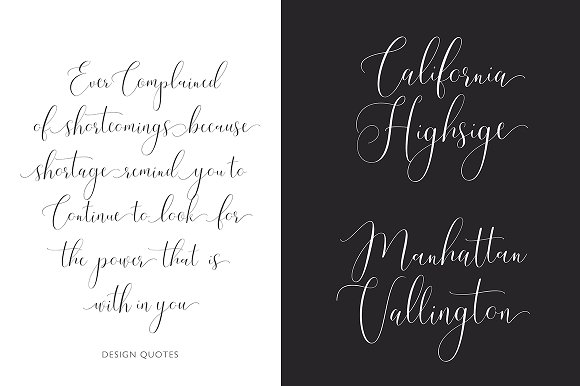 Ever Complained
of shortcomings because
shortage remind you to
Continue to look for
the power that is
with in you
DESIGN QUOTES
California
Highsige
Manhattan
Vallington